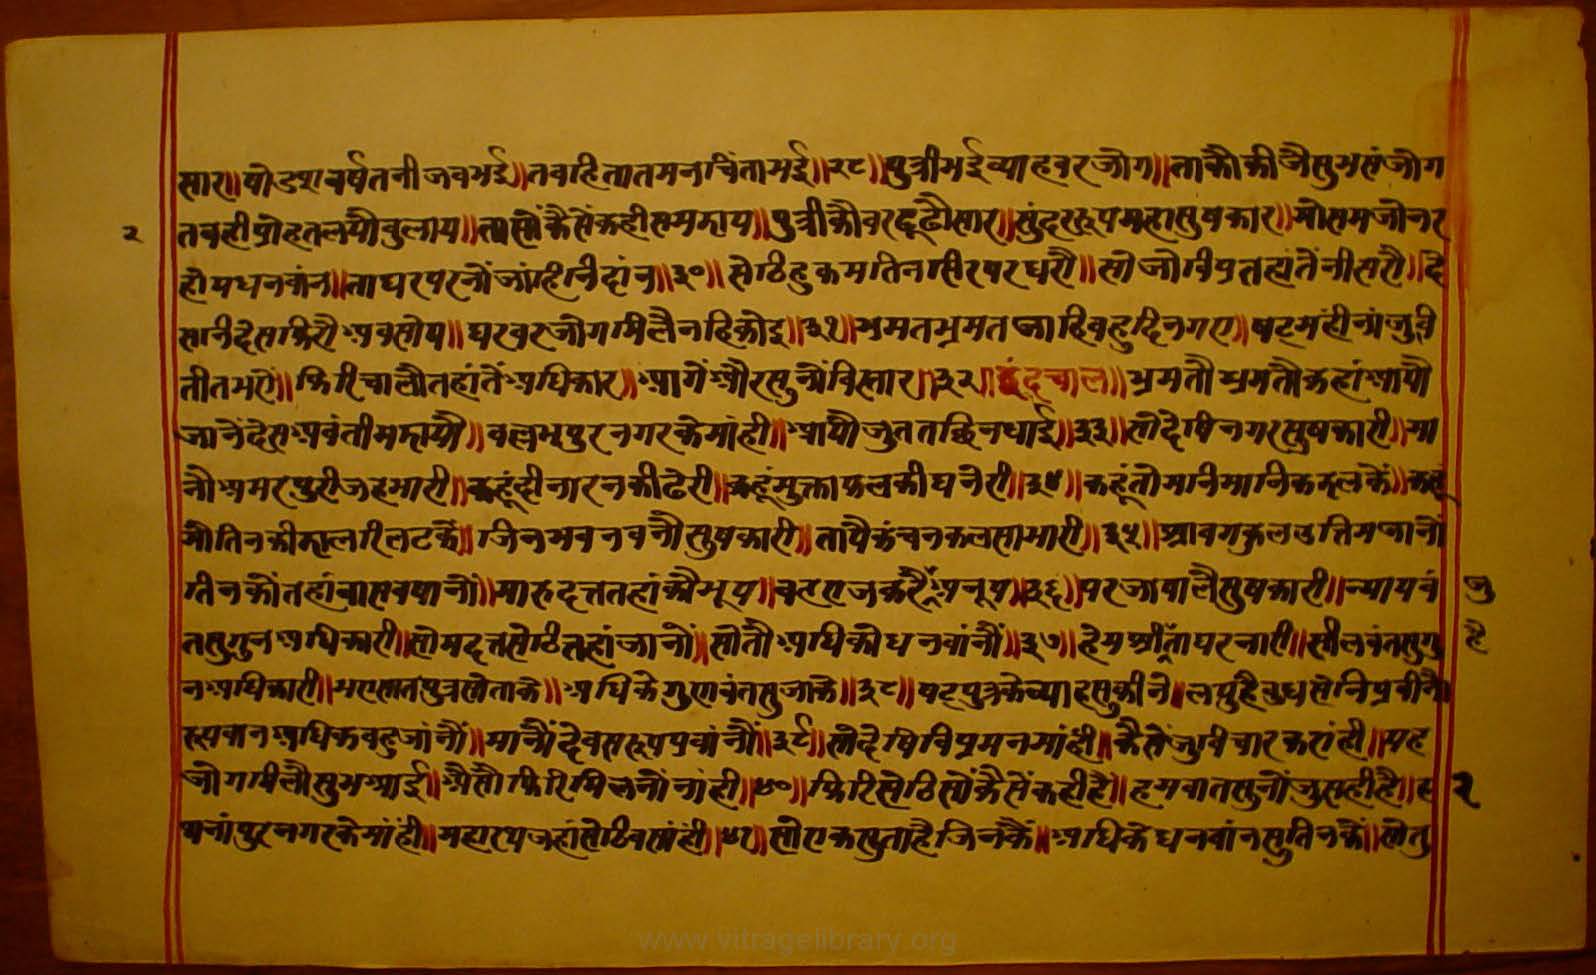 सार॥ षोडश वर्ष तनी जब भई॥ तब हि तात मन चिंता भई॥२८॥ पुत्री भई व्याह वर जोग॥ ताकौ कीजै सुभ संजोग
२ तबही प्रोहत लयौ बुलाय॥ तासों कैसें कही समझाय॥ पुत्री कौ वर ढूढौ सार॥ सुंदर रूप महा सुषकार॥ मो सम जो नर
होय धनवांन॥ ता घर परनों जांहि निदांन॥३०॥ सेठि हुकम तिन सिर पर धरौ॥ सो जो विप्र तहां तें नीसरौ॥ दे
सानिदेस फिरौ अब सोय॥ घर वर जोग मिलै नहि कोइ॥३१॥ भ्रमत भ्रमत जाहि बहु दिन गए॥ षट महीनां जु वि
तीत भऐं॥ फिरि चालौ तहां तें अधिकार॥ आगें और सुनों विसार॥३२॥ छंद चाल॥ भ्रमतौ भ्रमतौ कहां आयौ
जानें देस अवंती मझायौ॥ वल्लभपुर नगर के मांही॥ आयौ जुत तछिन धाई॥३३॥ सो देषि नगर सुषकारी॥ मा
नौ अमरपुरी जह भारी॥ कहूं हीनारन की ढेरी॥ कहूं मुक्ताफल की घनेरी॥३४॥ कहूं तो मानि मानिक झलकें॥ कहूं
मौतिन की झालरि लटकैं॥ जिन भवन बनौ सुषकारी॥ तापै कंचन कलसा भारी॥३५॥ श्रावग कुल उत्तिम जानों
तिनकों तहां वास वषानों॥ मारुदत्त तहां कौ भूप॥ वह राज करै अनूप॥३६॥ परजा पालै सुषकारी॥ न्यायवं जु
त सुगुन अधिकारी॥ सोमदत्त सेठि तहां जानों॥ सो तौ अधिको धनवांनौं॥३७॥ हेमश्री ता घर नारी॥ सीलवंत सुगु है
न अधिकारी॥ भए सात पुत्र सो ताके॥ अधिके गुणवंत सु जाके॥३८॥ षट पुत्र के व्याह सु कीने॥ लघु है बुधसेनि प्रवीनै
रूपवान अधिक बहु जांनौं॥ मानौं देव सरूप प्रवांनौं॥३९॥ सो देषि विप्र मन मांही॥ कैसें जु विचार करांही॥ यह
जोग मिलौ सुभ आई॥ अैसौ फिरि मिलनों नांही॥४०॥ फिरि सेठि सों कैसें कही है॥ हम बात सुनों जु सही है॥ ह २
थनांपुर नगर के मांही॥ महारथ जहां सेठि वसांही॥४१॥ सो एक सुता है जिनकैं॥ अधिके धनवांन सु तिनकें॥ सो तु
www.vitragelibrary.org